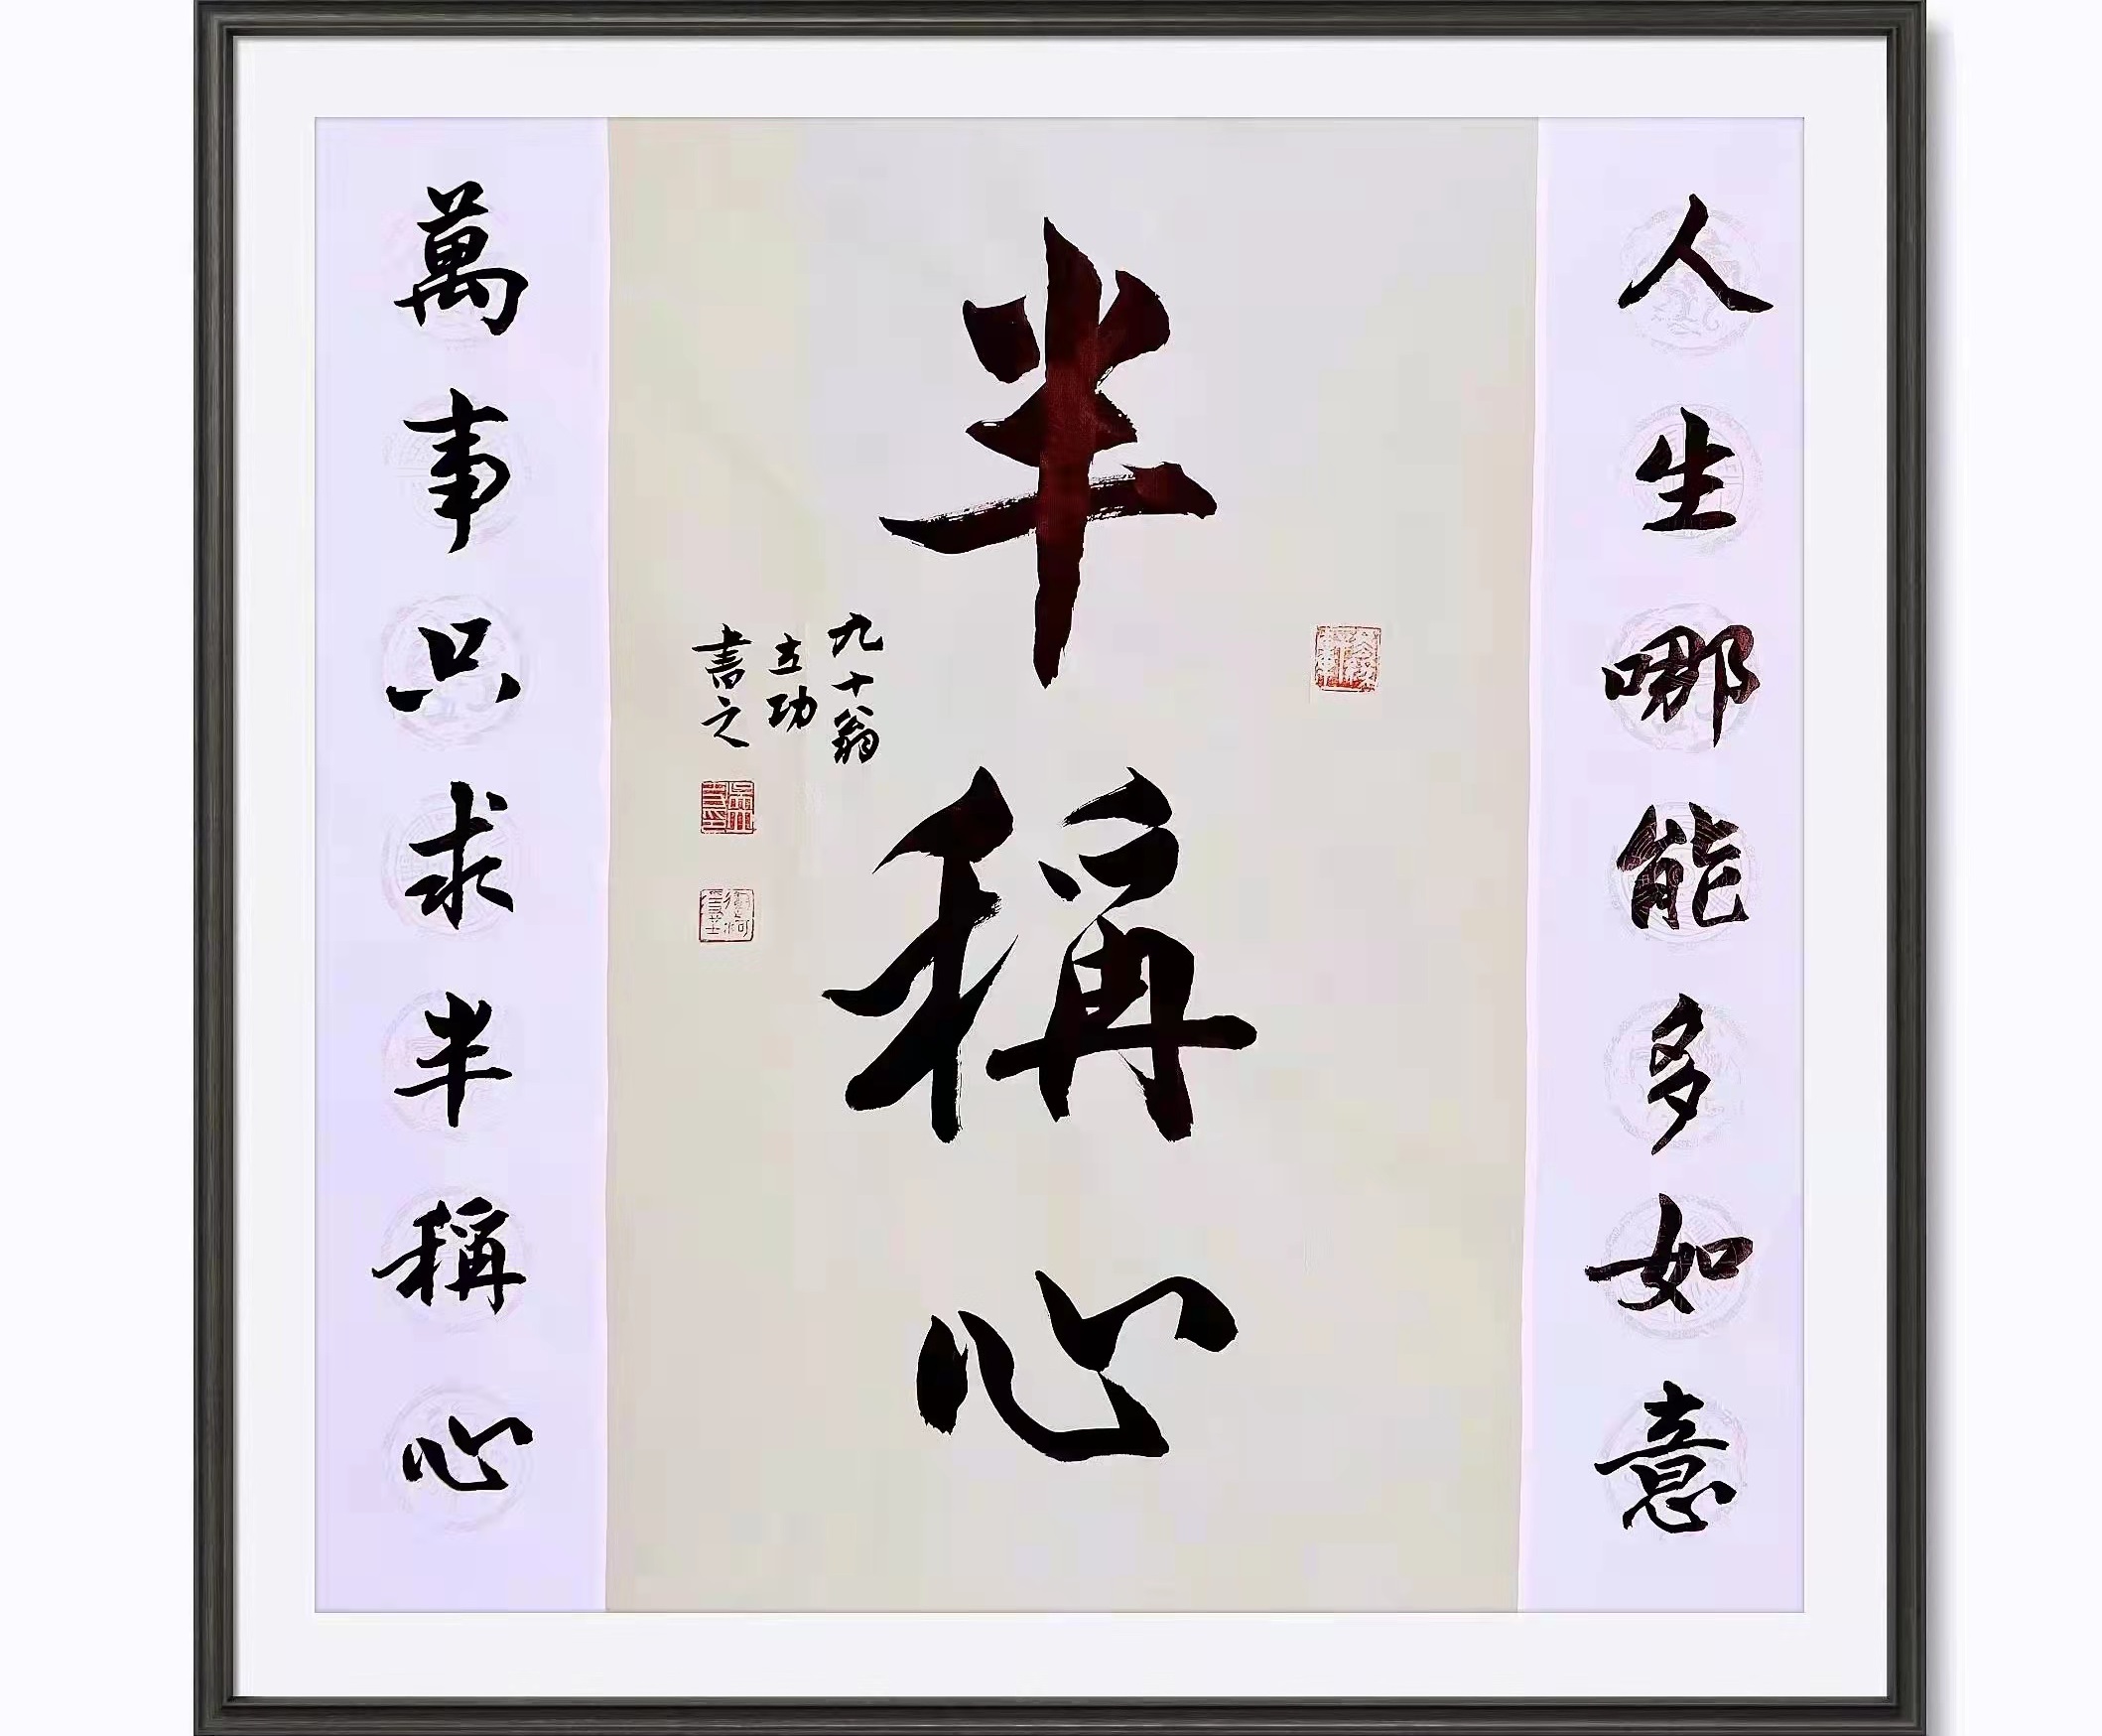 人生哪能多如意
半稱心
九十翁
立功
書之
萬事只求半稱心